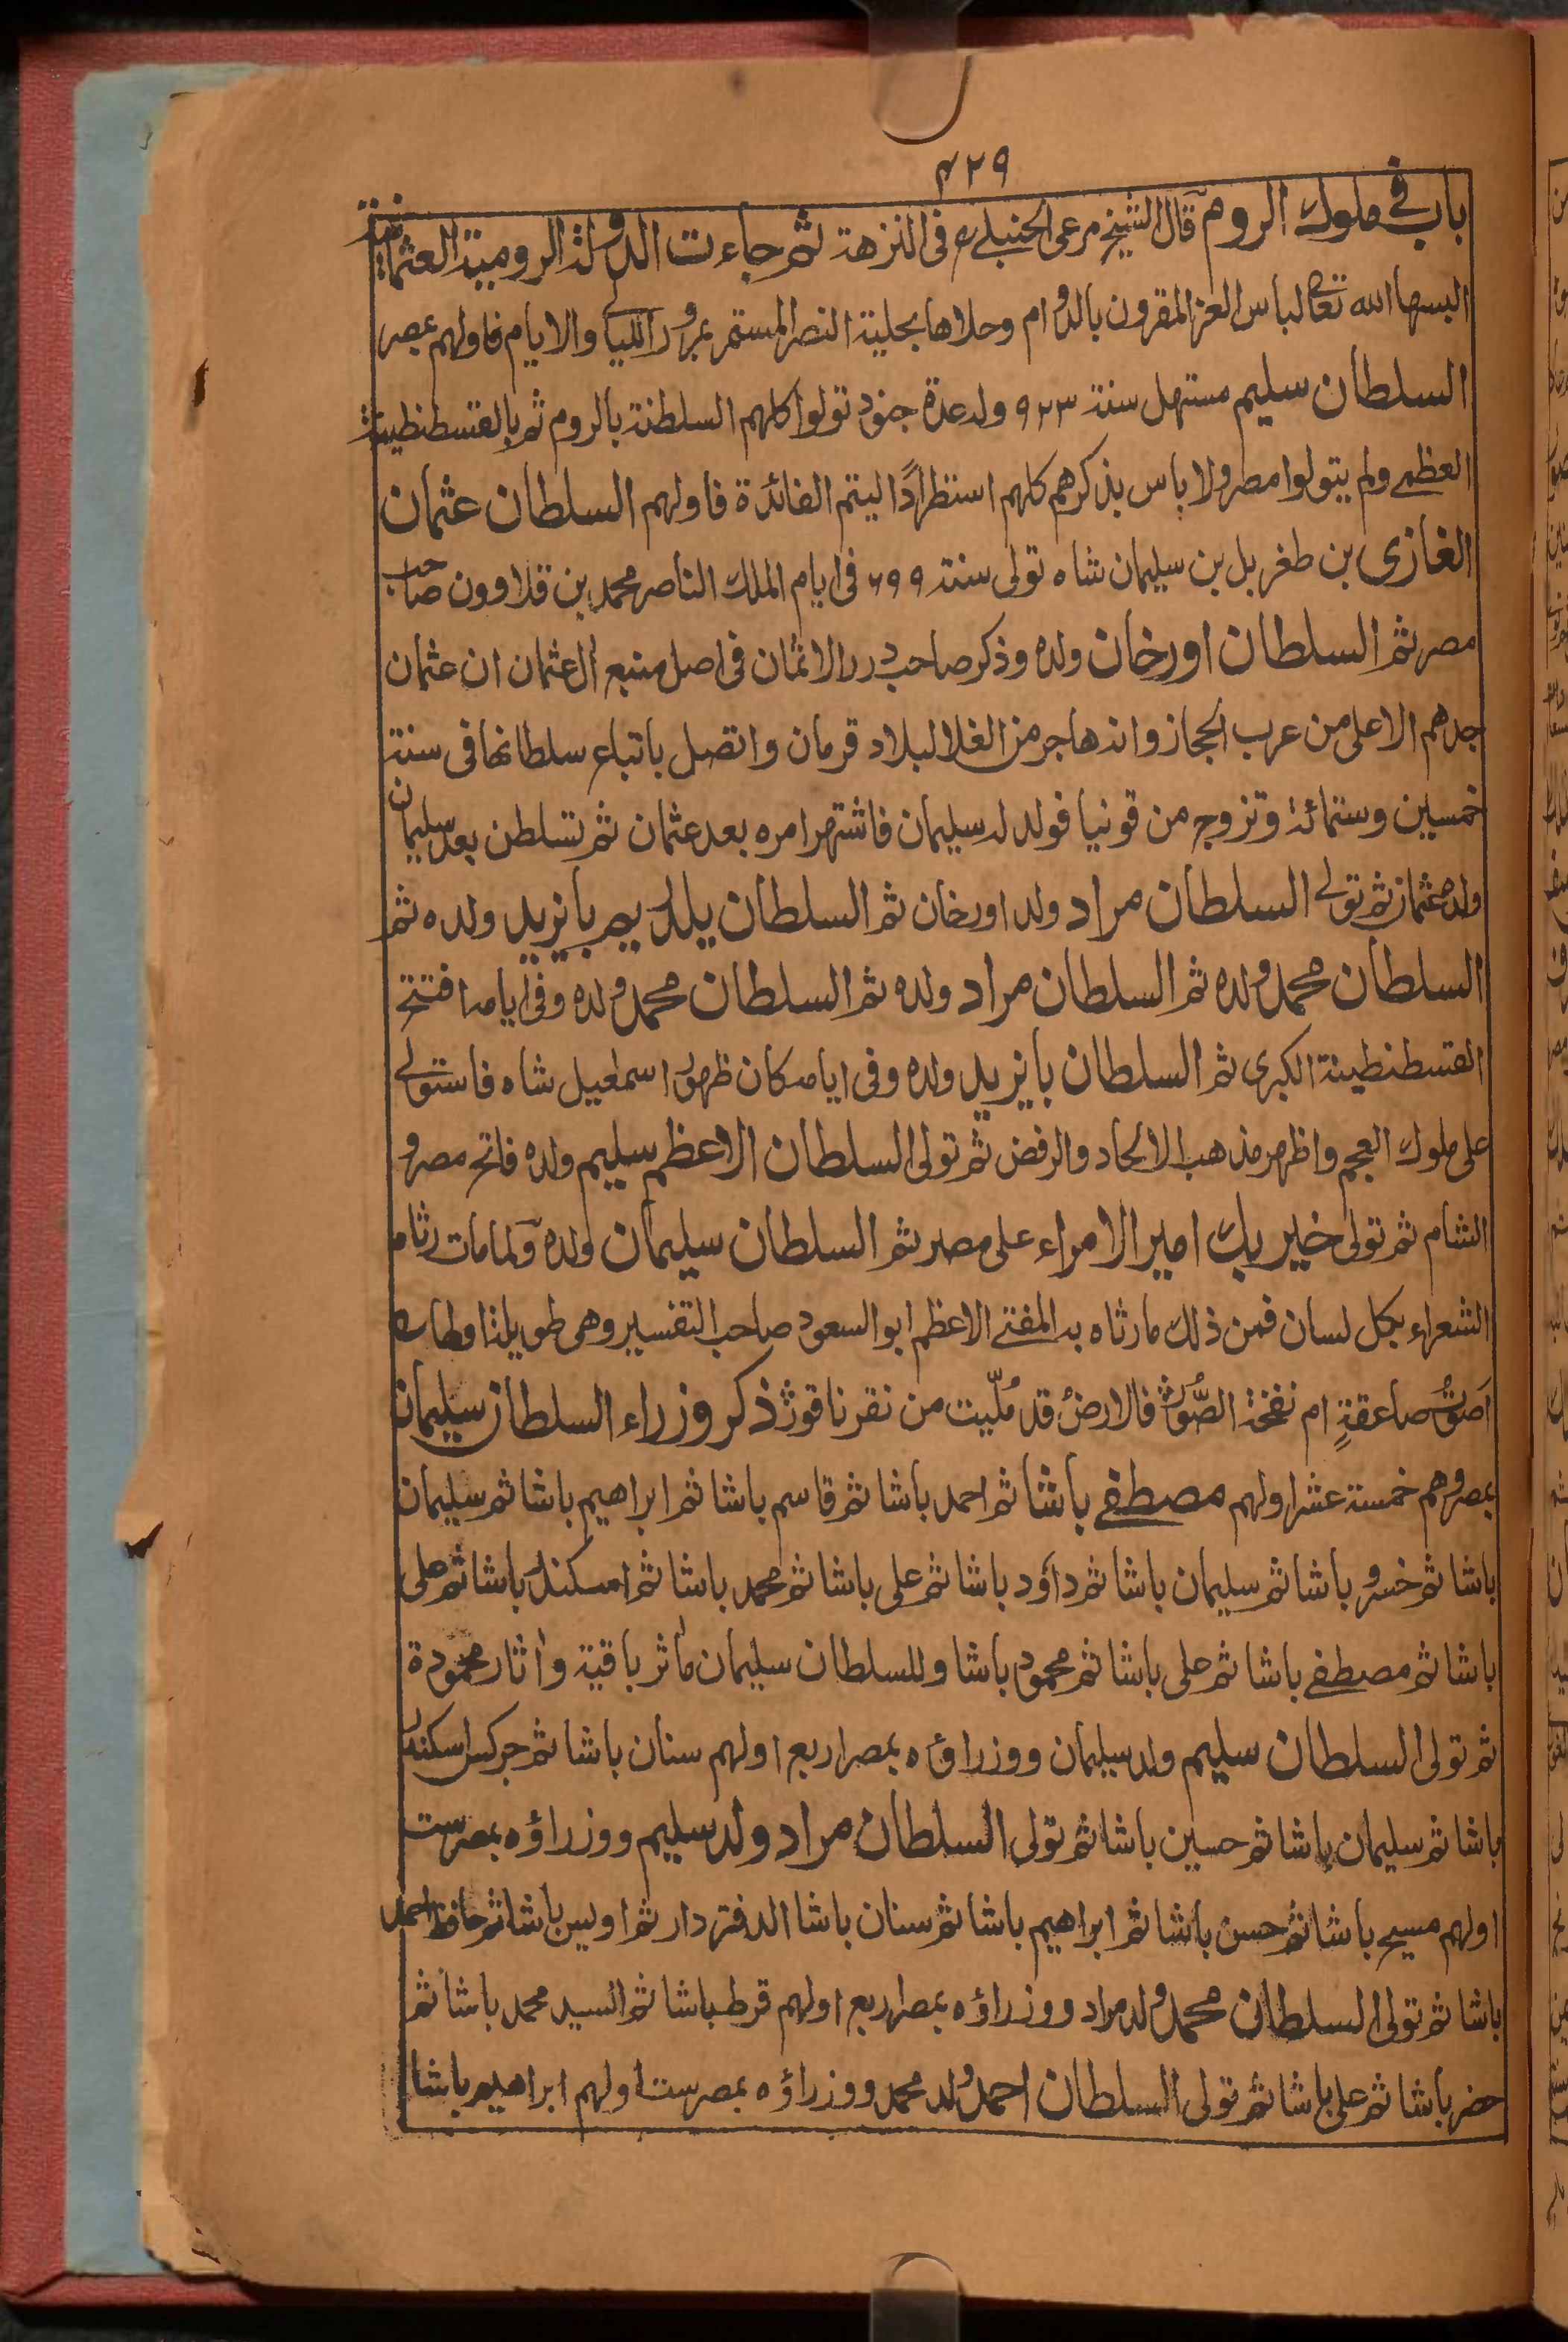 ٤٢٩
باب في ملوك الروم قال الشيخ مرعى الحنبلي في النزهة ثم جاءت الدولة الرومية العثمانية
البسها الله تعالى لباس العز المقرون بالدوام وحلاها بحلية النصر المستمر بمرور الليالي والايام فاولهم بمصر
السلطان سليم مستهل سنة ٩٢٣ وله عدة جنود تولوا كلهم السلطنة بالروم ثم بالقسطنطينية
العظمى ولم يتولوا مصر ولا باس بذكرهم كلهم استطرادًا ليتم الفائدة فاولهم السلطان عثمان
الغازى بن طغربل بن سليمان شاه تولى سنة ٦٩٩ فى ايام الملك الناصر محمد بن قلاوون صاحب
مصر ثم السلطان اورخان ولده وذكر صاحب درر الاثمان فى اصل منبع آل عثمان ان عثمان
جدهم الاعلى من عرب الحجاز وانه هاجر من الغلا لبلاد قرمان واتصل باتباع سلطانها فى سنة
خمسين وستمائة وتزوج من قونيا فولد له سليمان فاشتهر امره بعد عثمان ثم تسلطن بعد سليمان
ولده عثمان ثم تولى السلطان مراد ولد اورخان ثم السلطان يلديرم بايزيد ولده ثم
السلطان محمد ولده ثم السلطان مراد ولده ثم السلطان محمد ولده وفى ايامه افتتح
القسطنطينة الكبرى ثم السلطان بايزيد ولده وفى ايامه كان ظهور اسمعيل شاه فاستولى
على ملوك العجم واظهر مذهب الالحاد والرفض ثم تولى السلطان الاعظم سليم ولده فاتح مصر و
الشام ثم تولى خير بك امير الامراء على مصر ثم السلطان سليمان ولده ولما مات رثاه
الشعراء بكل لسان فمن ذلك ما رثاه به المفتى الاعظم ابو السعود صاحب التفسير وهى طويلة
اصوت صاعقةٍ ام نفخة الصُّور فالارضُ قد مُلّيت من نقر ناقور ذكر وزراء السلطان سليمان
بمصر وهم خمسة عشر اولهم مصطفى باشا ثم احمد باشا ثم قاسم باشا ثم ابراهيم باشا ثم سليمان
باشا ثم خسرو باشا ثم سليمان باشا ثم داؤد باشا ثم على باشا ثم محمد باشا ثم اسكندر باشا ثم على
باشا ثم مصطفى باشا ثم على باشا ثم محمود باشا وللسلطان سليمان مآثر باقية وآثار محمودة
ثم تولى السلطان سليم ولد سليمان ووزراؤه بمصر اربع اولهم سنان باشا ثم جركس اسكندر
باشا ثم سليمان باشا ثم حسين باشا ثم تولى السلطان مراد ولد سليم ووزراؤه بمصر ست
اولهم مسيح باشا ثم حسن باشا ثم ابراهيم باشا ثم سنان باشا الدفتردار ثم اويس باشا ثم حافظ احمد
باشا ثم تولى السلطان محمد ولد مراد ووزراؤه بمصر اربع اولهم قرط باشا ثم السيد محمد باشا ثم
حضر باشا ثم على باشا ثم تولى السلطان احمد ولد محمد ووزراؤه بمصر ست اولهم ابراهيم باشا